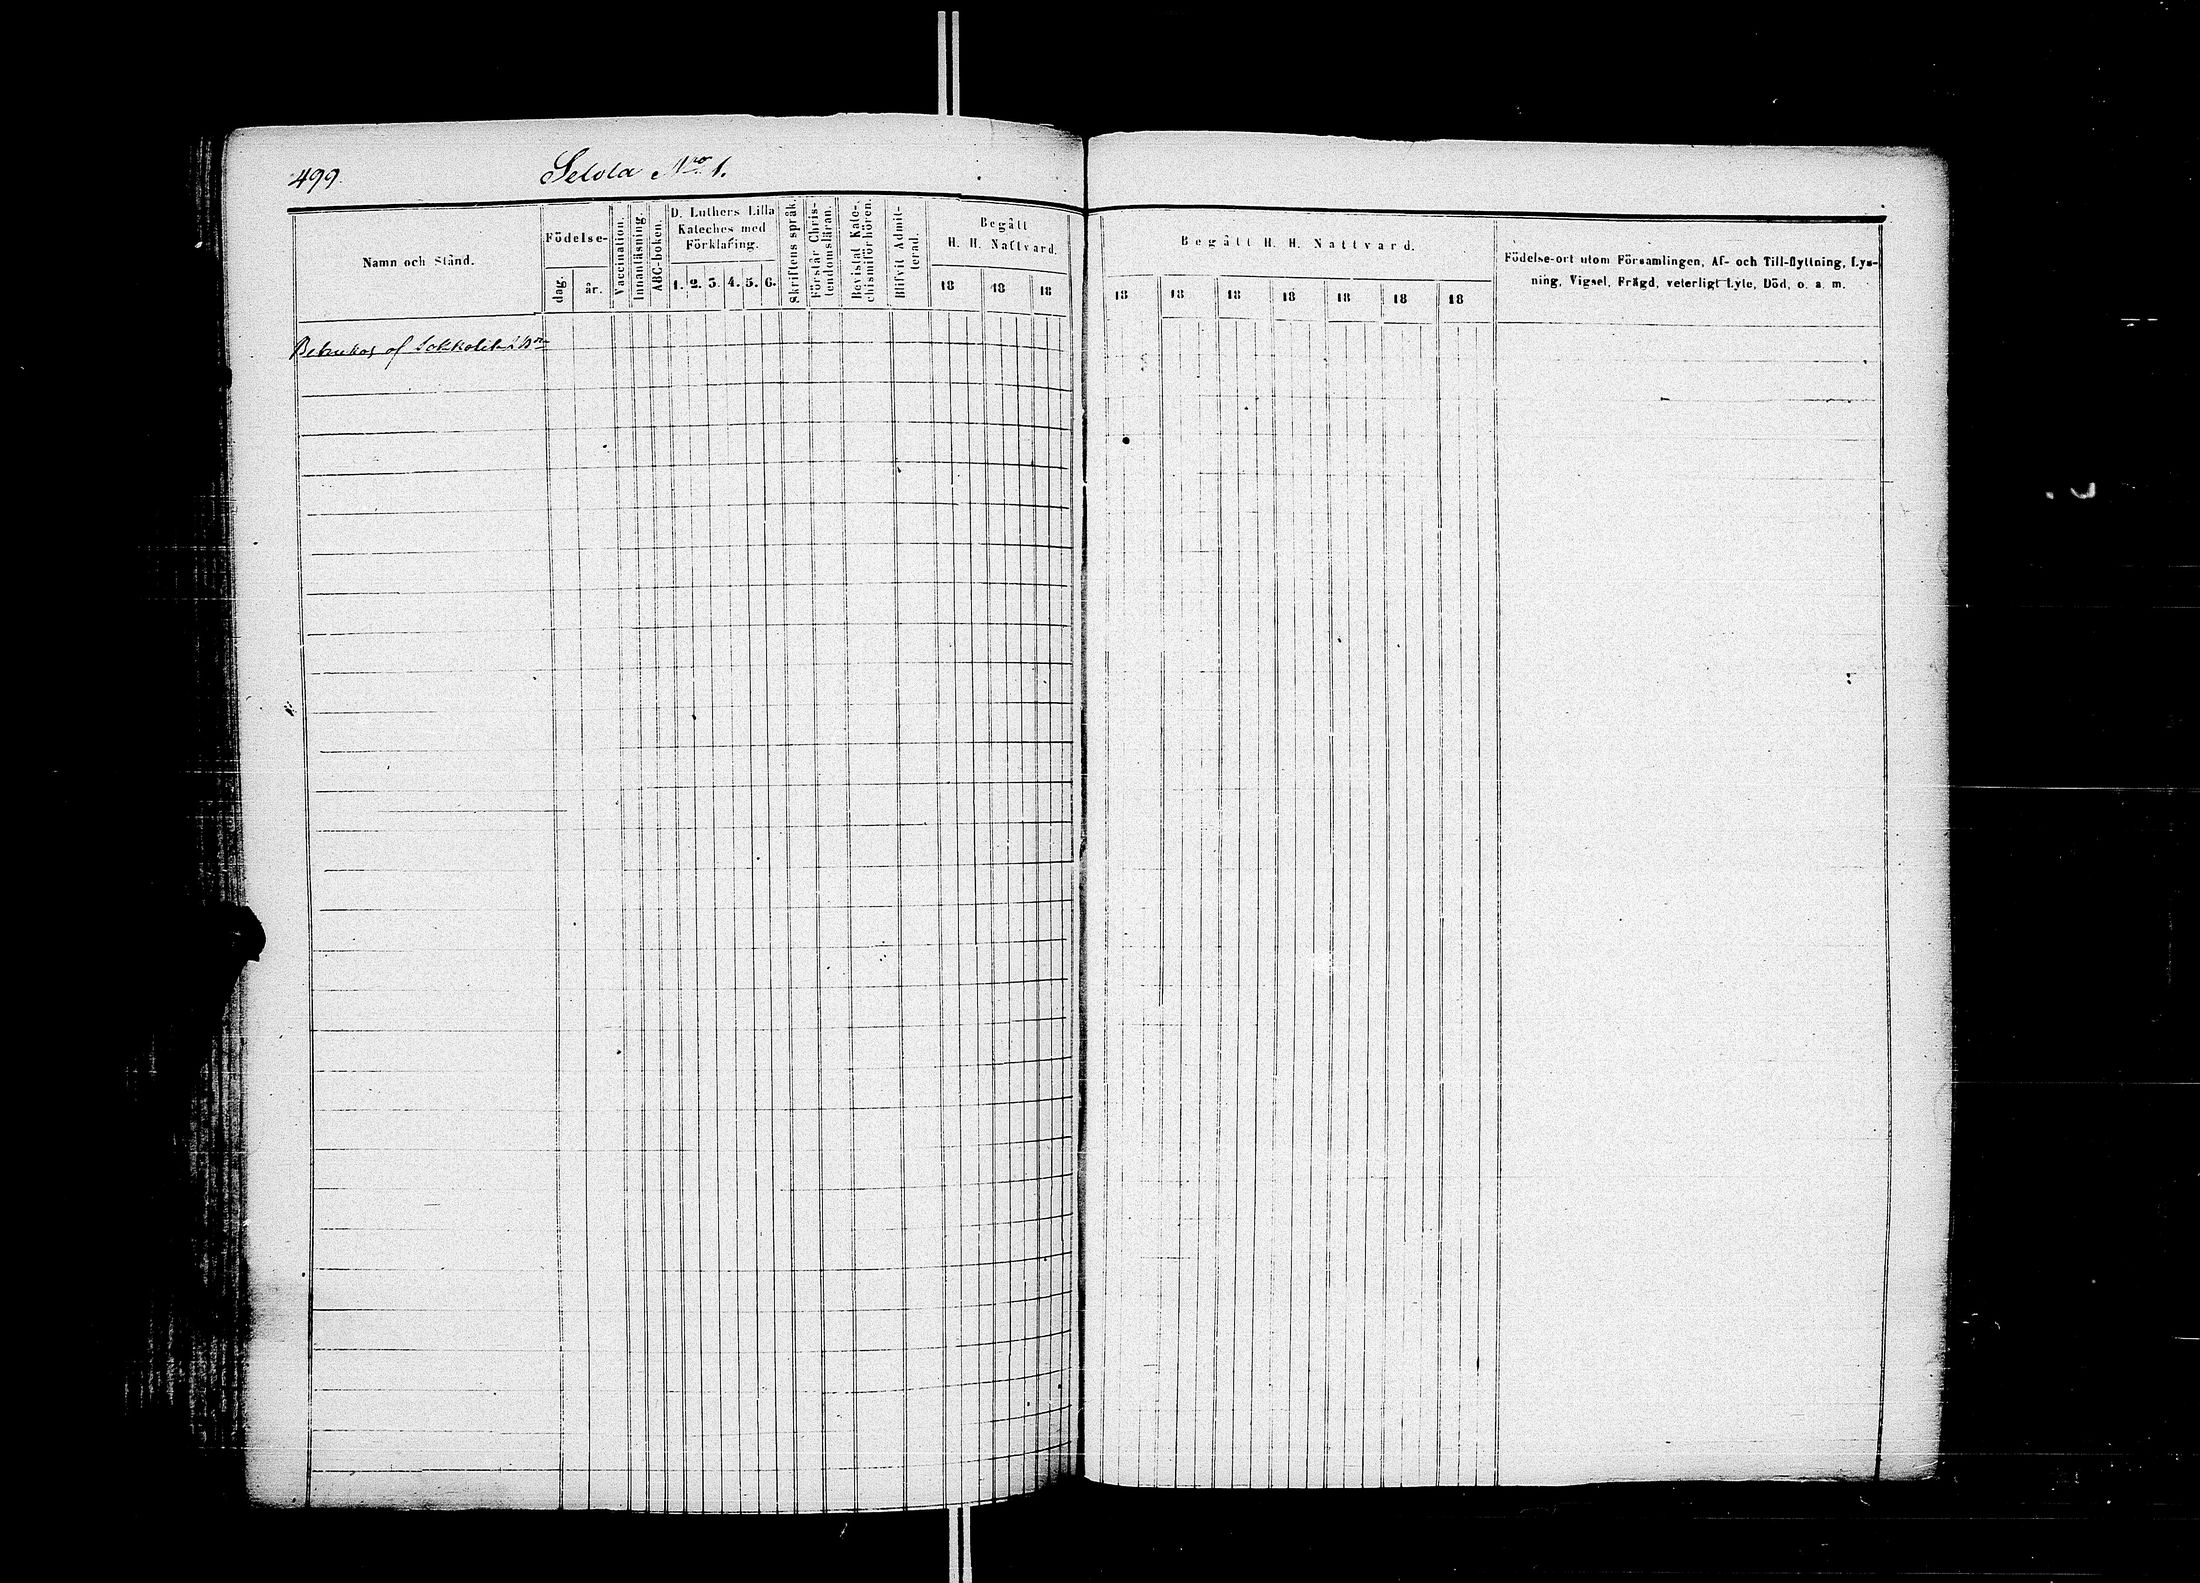 499.
Selola Nro 1.
Namn och Stånd.
Födelse-
dag.
år.
Vaccination.
Innanläsning.
ABC-boken.
D. Luthers Lilla
Kateches med
Förklaring.
1. 2. 3. 4. 5. 6.
Skriftens språk.
Förstår Chris-
tendomsläran.
Bevistat Kate-
chismiförhören.
Blifvit Admit-
terad.
Begått
H. H. Nattvard.
18 18 18
Begått H. H. Nattvard.
18 18 18 18 18 18 18
Födelse-ort utom Församlingen, Af- och Till-flyttning, Lys-
ning, Vigsel, Frägd, veterligt Lyte, Död, o. a. m.
Brukas af